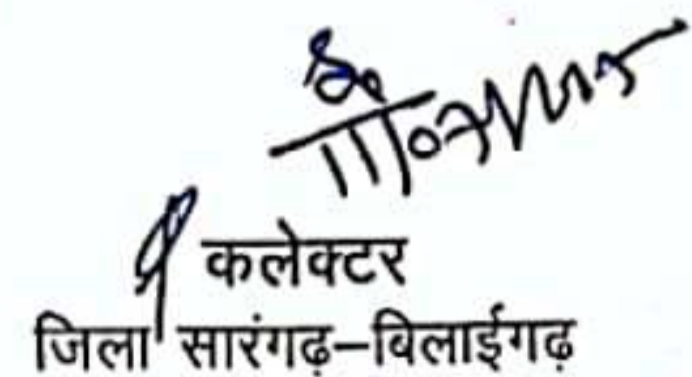 कलेक्टर
जिला सारंगढ़–बिलाईगढ़